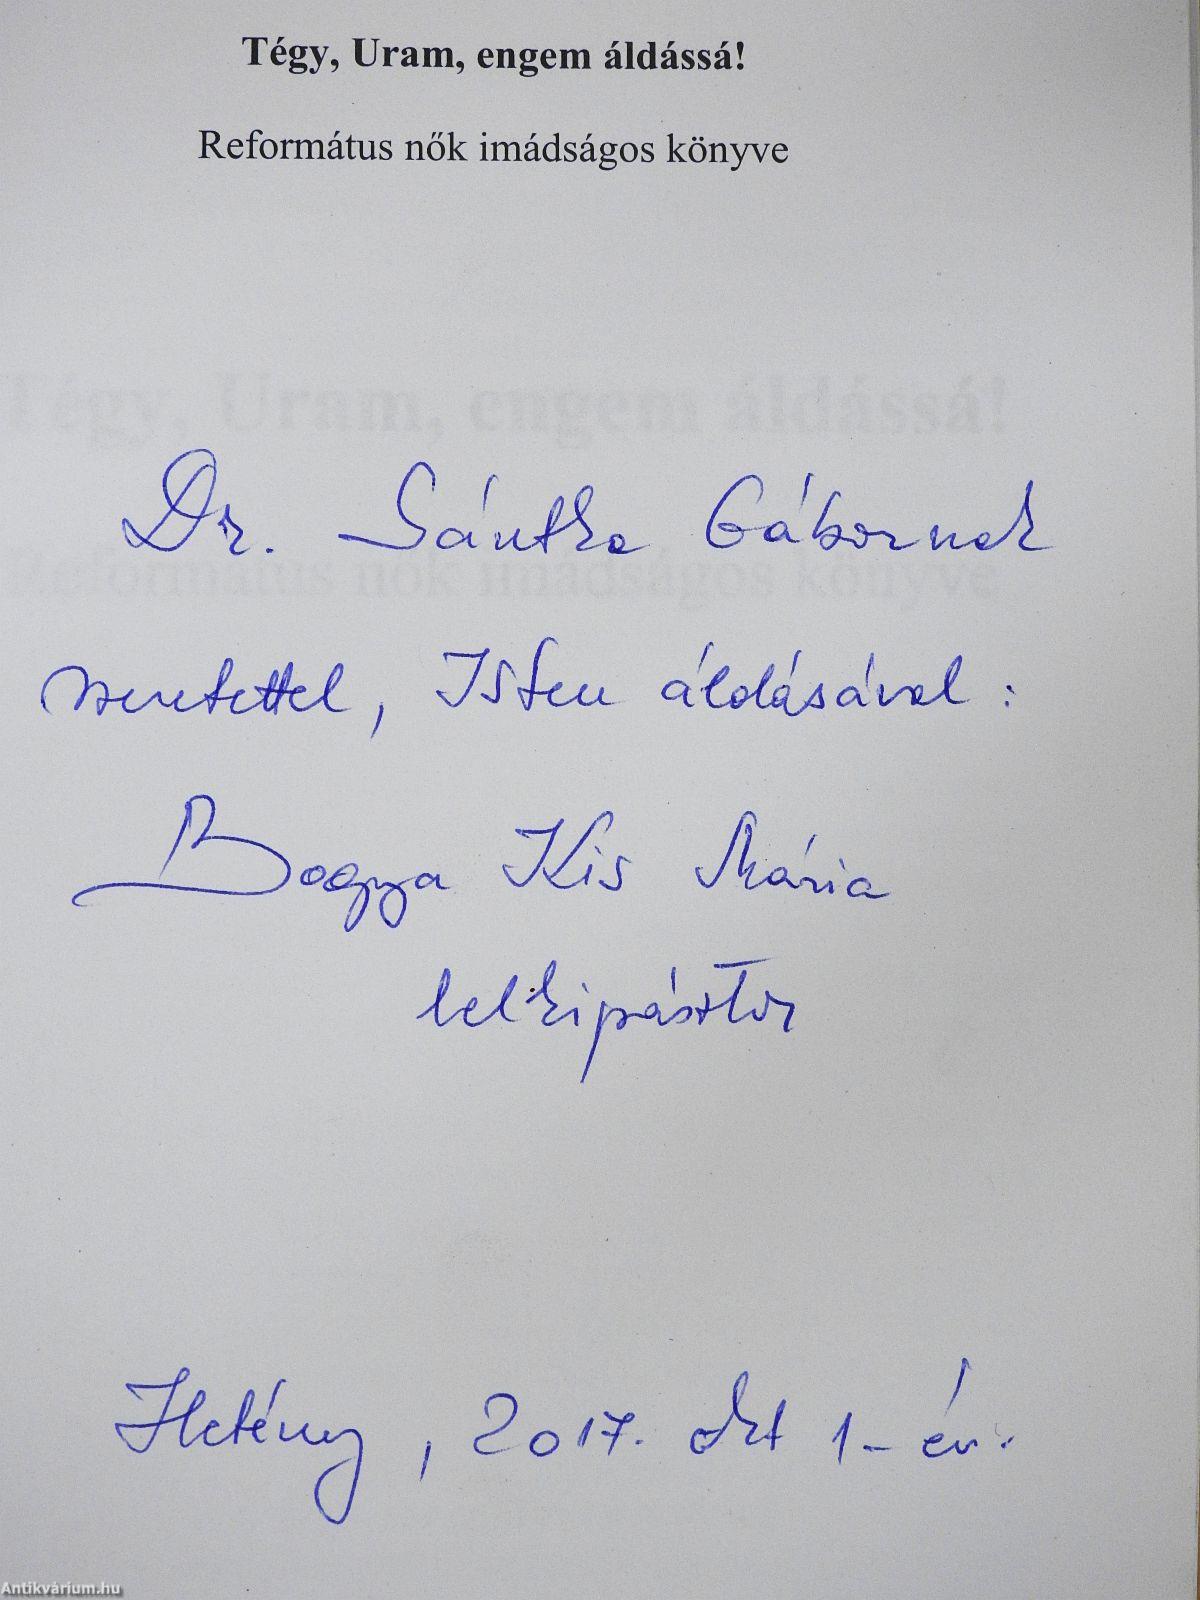 Tégy, Uram, engem áldássá!
Református nők imádságos könyve
Tégy, Uram, engem áldássá!
Református nők imádságos könyve
Dr. Sántha Gábornak
szeretettel, Isten áldásával:
Bogya Kis Mária
lelkipásztor
Hetény, 2017. okt 1-én.
Antikvárium.hu